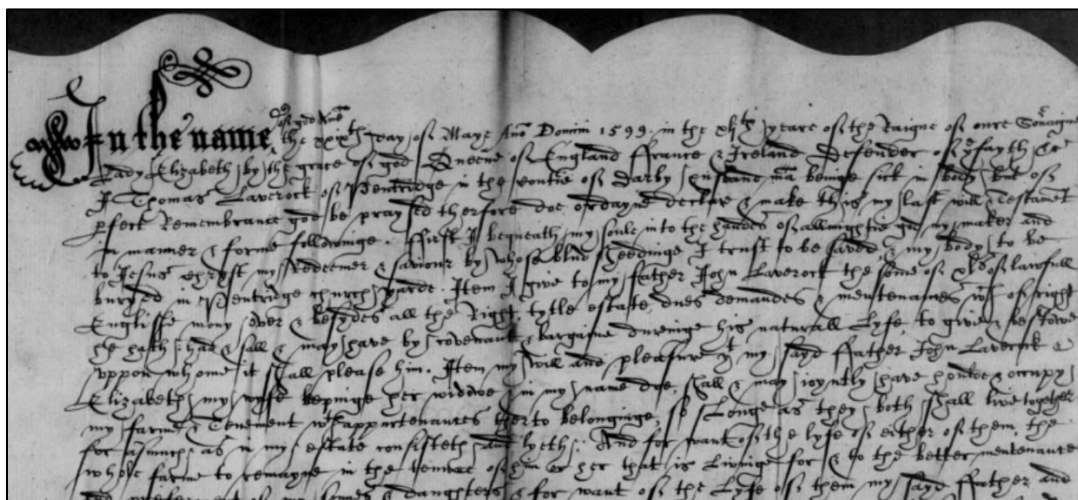 In the name of god Amen the xxixth day of Maye Ano Domini 1599 in the xlith yeare of the Raigne of oure Soveraigne
Lady Elizabeth by the grace of god Queene of England ffrance & Ireland Defender of ye fayth &c
I Thomas Laverock of Pentridge in the Countie of Darby husband ma beinge sick in body but of
pfect Remembrance god be praysed therfore doe ordayne declare & make this my last will & Testamt
in maner & forme followinge. ffirst I bequeath my soule into the handes of allmightie god my maker and
to Jesus Chryst my Redeemer & saviour by whose blud sheddinge I trust to be saved & my body to be
buryed in Pentridge church yarde. Item I give to my father John Laverock the some of of lawfull
Englisse mony over & besydes all the Right tytle estate dues demandes & mentenances wch of right
he hath had & shall & may have by covenant & bargaine dureinge his naturall Lyfe to give & bestowe
uppon whome it shall please him. Item my will and pleasure yt my sayd ffather John Laverock &
Elizabeth my wyffe kepinge her widdoe in my name doe shall & may joyntly have houlde & occupy
my farme & Tenement wth appurtenances therto belonginge so Longe as they both shall live together
for asmuch as in my estate consisteth and lyeth. And for want of the lyfe of either of them, the
whole farme to remayne in the tenure of him or her that is Livinge for & to the better mentenance
and of my sonnes & daughters & for want of the Lyfe of them my sayd ffather and